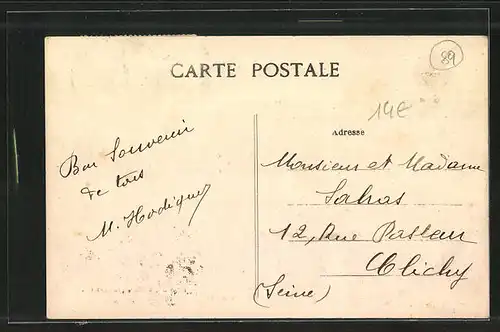 89
CARTE POSTALE
14€
Adresse
Bon Souvenir
de tous
M. Hodique
Monsieur et Madame
Sabras
12, Rue
Clichy
(Seine)